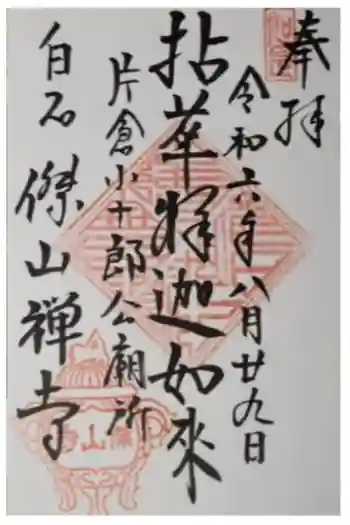 奉拝
令和六年八月廿九日
拈華釋迦如來
片倉小十郎公廟所
白石 傑山禅寺
傑山